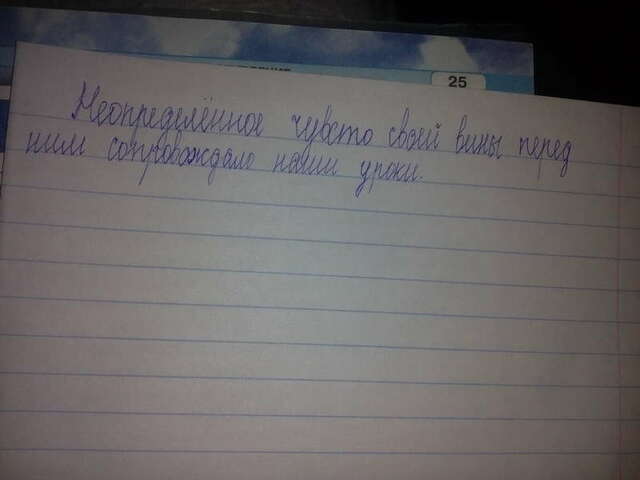 25
Неопределённое чувсто своей вины перед
ним сопровождало наши уроки.